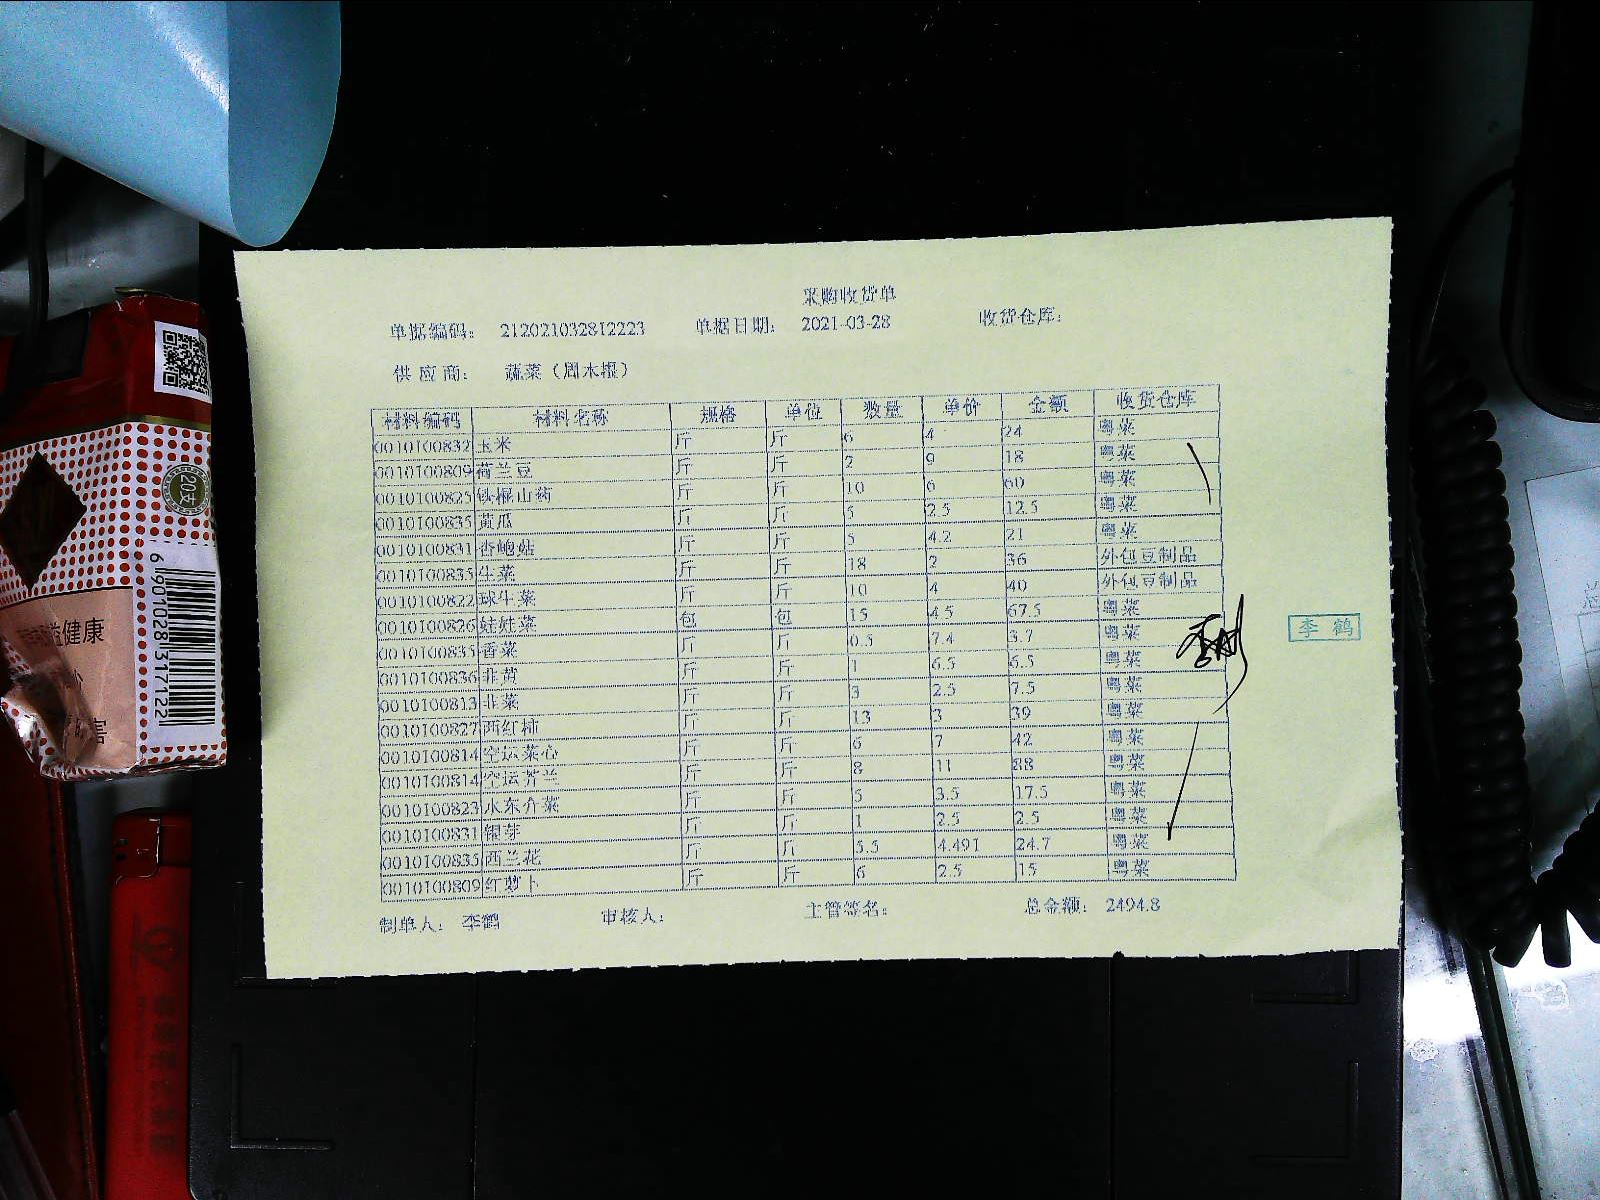 采购收货单
单据编码： 212021032812223 单据日期： 2021-03-28 收货仓库：
供应商： 蔬菜（周木根）
材料编码 材料名称 规格 单位 数量 单价 金额 收货仓库
0010100832 玉米 斤 斤 6 4 24 粤菜
0010100809 荷兰豆 斤 斤 2 9 18 粤菜
0010100825 铁棍山药 斤 斤 10 6 60 粤菜
0010100835 黄瓜 斤 斤 5 2.5 12.5 粤菜
0010100831 杏鲍菇 斤 斤 5 4.2 21 粤菜
0010100835 生菜 斤 斤 18 2 36 外包豆制品
0010100822 球生菜 斤 斤 10 4 40 外包豆制品
0010100826 娃娃菜 包 包 15 4.5 67.5 粤菜
0010100835 香菜 斤 斤 0.5 7.4 3.7 粤菜
0010100836 韭黄 斤 斤 1 6.5 6.5 粤菜
0010100813 韭菜 斤 斤 3 2.5 7.5 粤菜
0010100827 西红柿 斤 斤 13 3 39 粤菜
0010100814 空运菜心 斤 斤 6 7 42 粤菜
0010100814 空运芥兰 斤 斤 8 11 88 粤菜
0010100823 水东介菜 斤 斤 5 3.5 17.5 粤菜
0010100831 银芽 斤 斤 1 2.5 2.5 粤菜
0010100835 西兰花 斤 斤 5.5 4.491 24.7 粤菜
0010100809 红萝卜 斤 斤 6 2.5 15 粤菜
制单人： 李鹤 审核人： 主管签名： 总金额： 2494.8
李鹤
20支
益健康
害
6 901028 317122